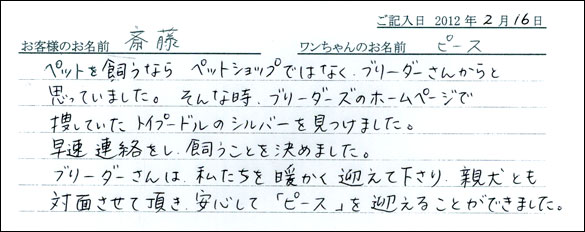 ご記入日 2012年2月16日
お客様のお名前 斎藤 ワンちゃんのお名前 ピース
ペットを飼うなら ペットショップではなく、ブリーダーさんからと
思っていました。 そんな時、ブリーダーズのホームページで
捜していた トイプードルのシルバーを見つけました。
早速 連絡をし、飼うことを決めました。
ブリーダーさんは、私たちを 暖かく 迎えて下さり、親犬とも
対面させて頂き、安心して 「ピース」を 迎えることができました。